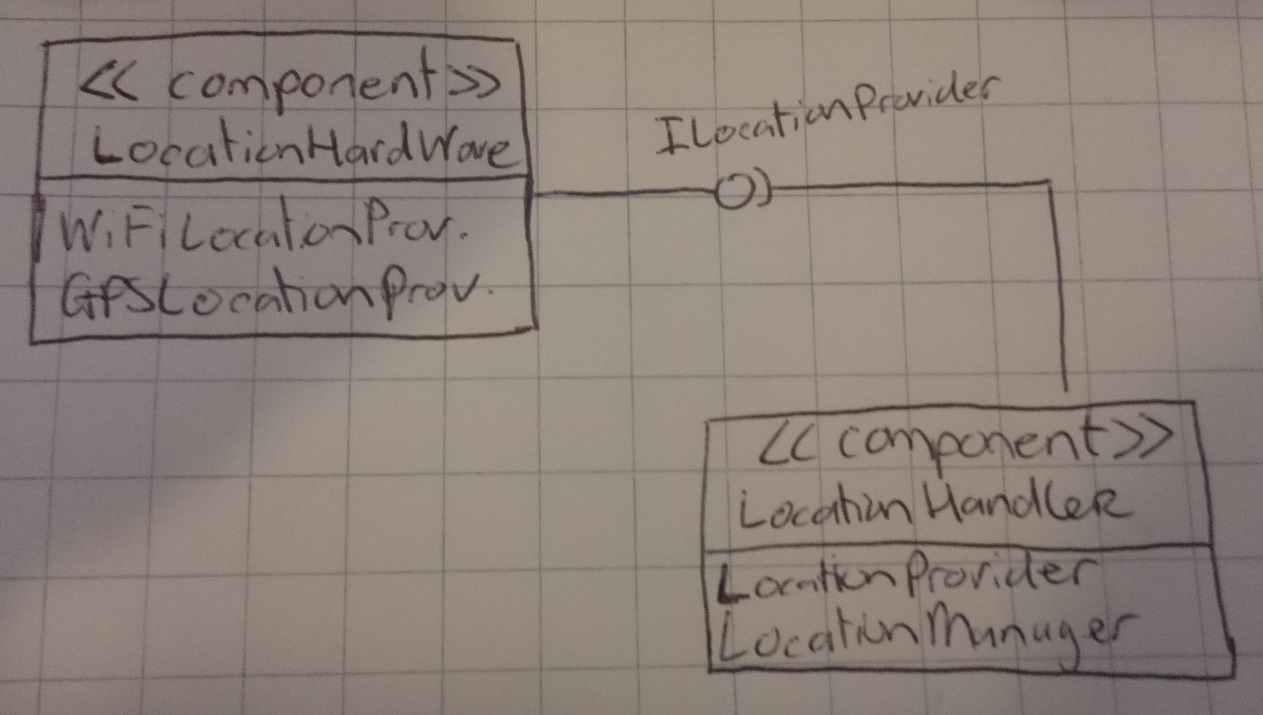 << component >>
LocationHardWare
WiFiLocationProv.
GPSLocationProv.
ILocationProvider
<< component >>
LocationHandler
LocationProvider
LocationManager